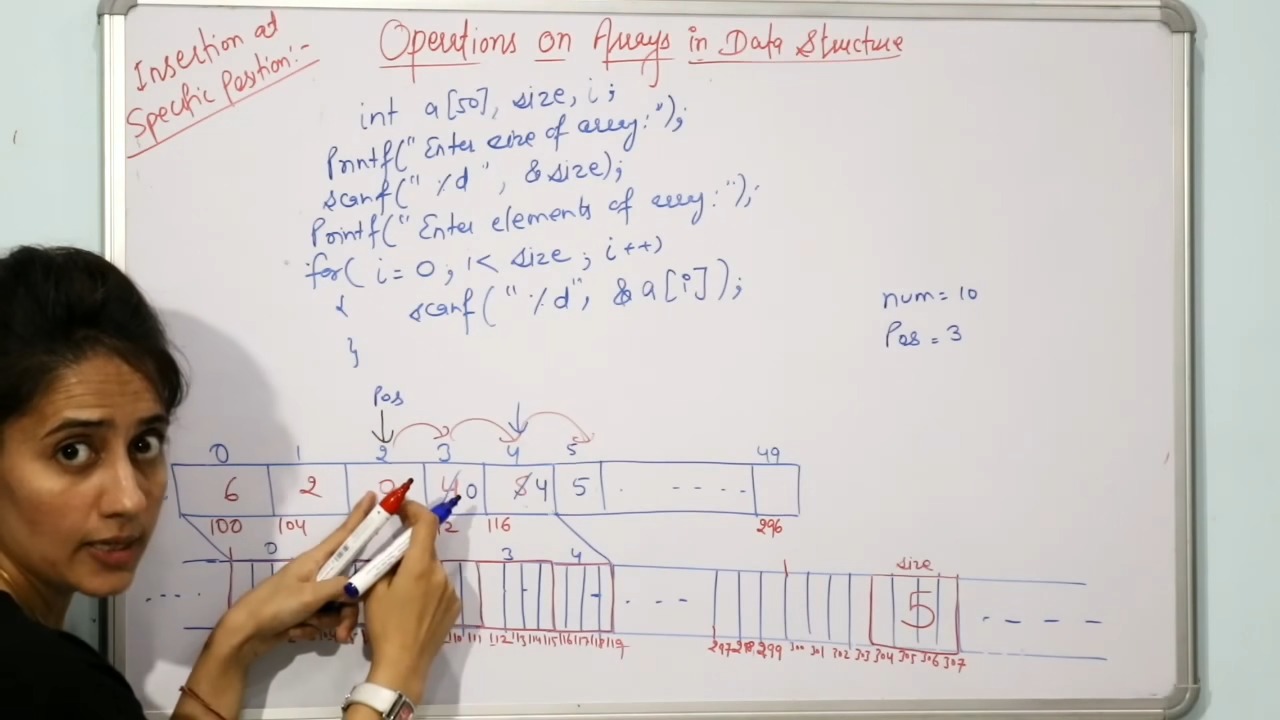 Insertion at
Specific Postion:-
Operations on Arrays in Data Structure
int a[50], size, i;
Printf("Enter size of array:");
scanf("%d", &size);
Printf("Enter elements of array:");
for( i=0; i< size; i++)
{ scanf("%d", &a[i]);
}
num = 10
Pos = 3
Pos
0 1 2 3 4 5 49
6 2 0 4 0 5 4 5 . - - - -
100 104 116 296
0 3 4 size
5
110 111 112 113 114 115 116 117 118 119 297 298 299 300 301 302 303 304 305 306 307